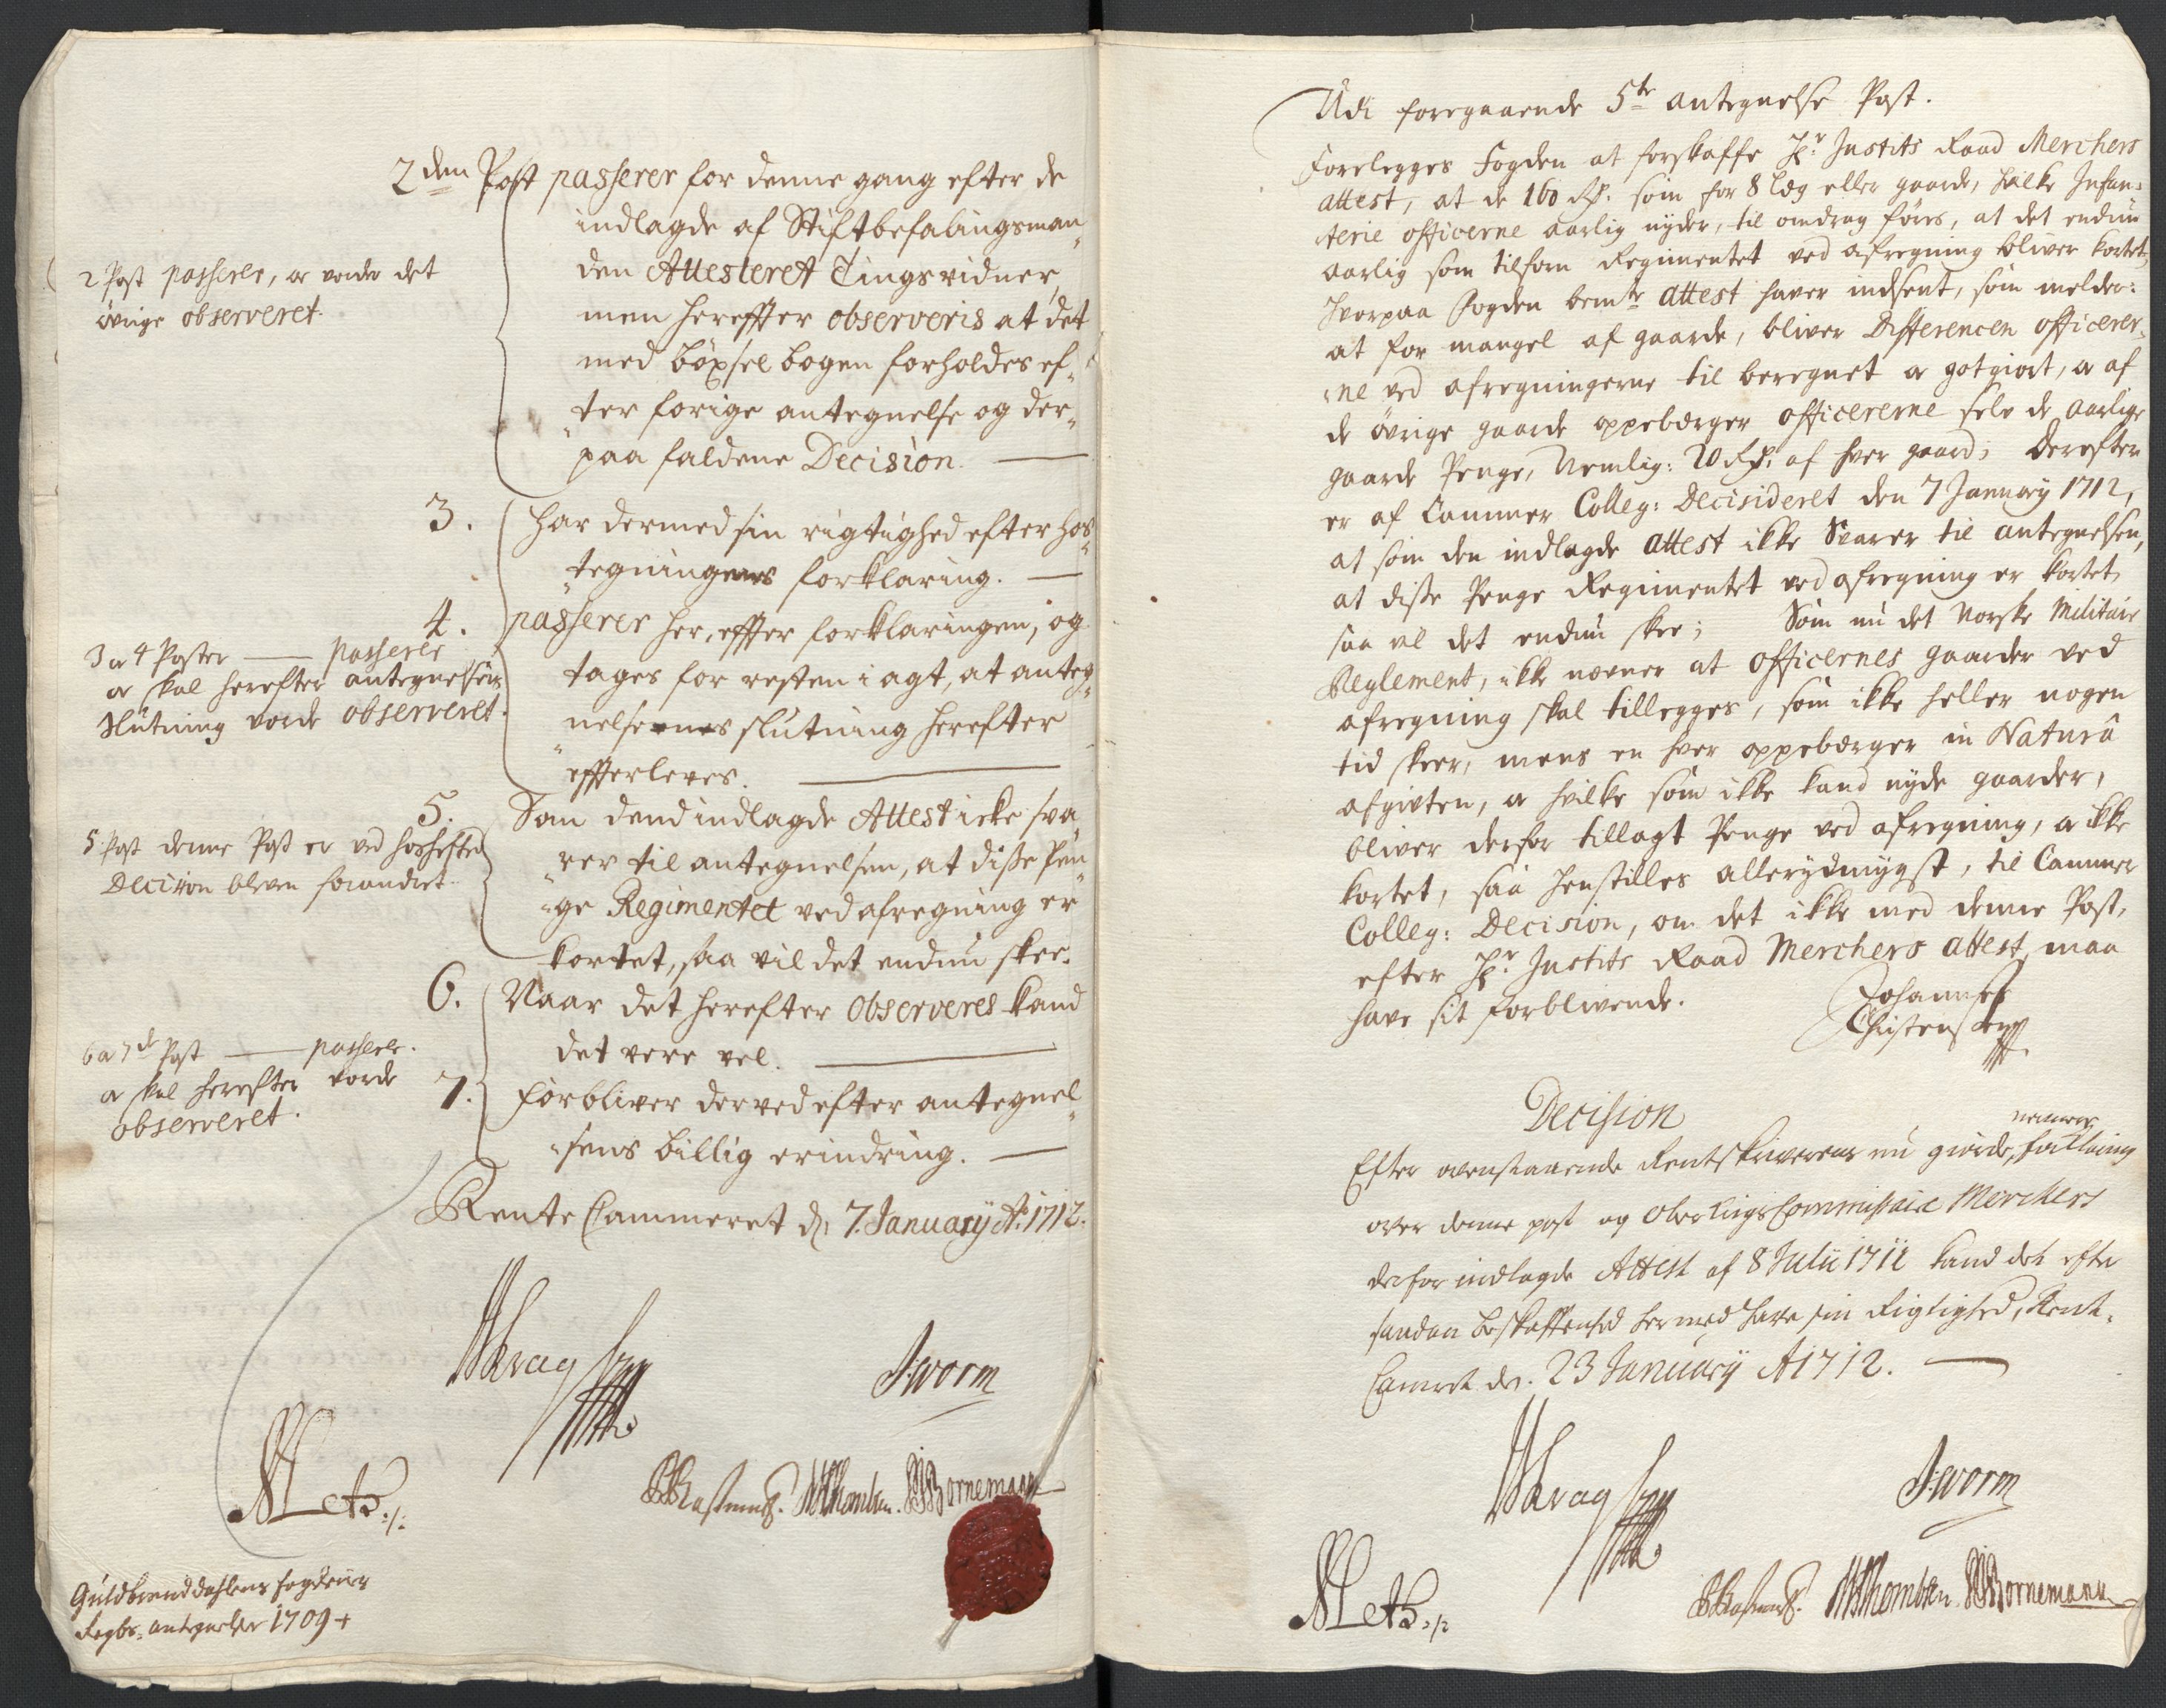 2den Post passerer for denne gang efter de
indlagde af Stiftbefalingsman„
den Attesteret Tingsvidner,
men hereffter observeris at det
med böxsel bogen forholdes ef„
„ter forige antegnelse og der„
paa faldene Decision. —
3. Har dermed sin rigtighed efter hos„
„tegningens forklaring. —
4. passerer her, effter forklaringen, og
tages for resten i agt, at anteg„
nelsernes slutning herefter
„effterleves. —
5. Som dend indlagde Attest icke sva„
„rer til antegnelsen, at disse Pen„
„ge Regimentet ved afregning er
kortet, saa vil det endnu skee.
6. Naar det herefter observeres kand
det være vel. —
7. forbliver derved efter antegnel„
„sens billig erindring. —
Rente Cammeret d. 7. January Ao. 1712.
2 Post passerer, og vorder det
övrige observeret.
3 og 4 Poster — passerer
og skal herefter antegnelsens
slutning vorde observeret.
5 Post denne Post er ved hoshefted
Decision bleven forandret.
6 og 7de Post — passerer.
og skal herefter vorde
observeret.
Krag
J. Worm
Metz
Thombsen. Bornemann
Guldbranddahlens fogderies
Regbs. antegnelser 1709
Udi foregaaende 5te antegnelse Post.
Forelegges Fogden at forskaffe Hr. Justits Raad Merchers
attest, at de 160 Rd. som for 8 læg eller gaarde, hvilke Infan„
terie officerne aarlig nyder, til omdrag föres, at det endnu
aarlig som tilforn Regimentet ved afregning bliver kortet,
Hvorpaa Fogden bemte attest haver indsent, som melder:
at for mangel af gaarde, bliver Differencen officerer„
„ne ved afregningerne til beregnet og gotgiort, og af
de övrige gaarde oppebærger officererne selv de aarlige
gaarde Penge, Nemlig: 20 Rd. af hver gaard; Derefter
er af Cammer Colleg: Decisideret den 7 January 1712,
at som den indlagde attest ikke Svarer til antegnelsen,
at disse Penge Regimentet ved afregning er kortet,
saa vil det endnu skee; Som nu det Norske Militair
Reglement, ikke nævner at officernes gaarder ved
afregning skal tillegges, som ikke heller nogen
tid skeer, mens en hver oppebærger in Natura
afgivten, og hvilke som ikke kand nyde gaarder,
bliver derfor tillagt Penge ved afregning, og ikke
kortet, saa henstilles allerydmygst, til Cammer
Colleg: Decision, om det ikke med denne Post,
efter Hr. Justits Raad Merchers attest, maa
have sit forblivende.
Johannes
Christensen
Decision
Efter ovenstaaende Rentskriverens nu giorde, nermere forklaring
over denne post og Oberkrigs Commissaire Merckers
derfor indlagde Attest af 8 Julii 1711 kand det efter
saadan beskaffenhed hermed have sin Rigtighed, Rente„
Camret den. 23 January A 1712. —
Krag
J. Worm
Metz
Thombsen Bornemann